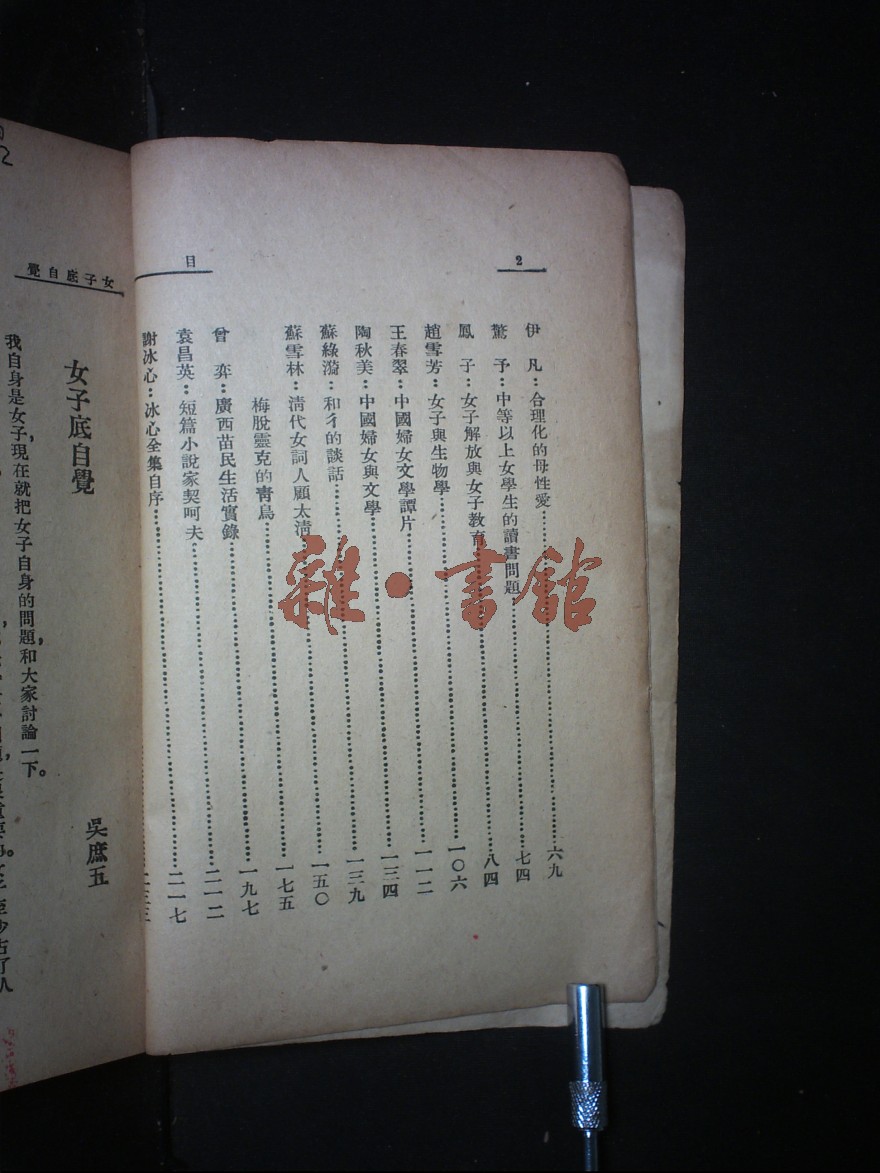 2
目
伊　凡：合理化的母性愛……六九
驚　予：中等以上女學生的讀書問題……七四
鳳　子：女子解放與女子教育……八四
趙雪芳：女子與生物學……一〇六
王春翠：中國婦女文學譚片……一一二
陶秋美：中國婦女與文學……一三四
蘇綠漪：和彳的談話……一三九
蘇雪林：清代女詞人顧太清……一五〇
梅脫靈克的青鳥……一七五
曾　弈：廣西苗民生活實錄……一九七
袁昌英：短篇小說家契呵夫……二一二
謝冰心：冰心全集自序……二一七
……二三三
雜·書館
女子底自覺
女子底自覺
吳庶五
我自身是女子，現在就把女子自身的問題，和大家討論一下。